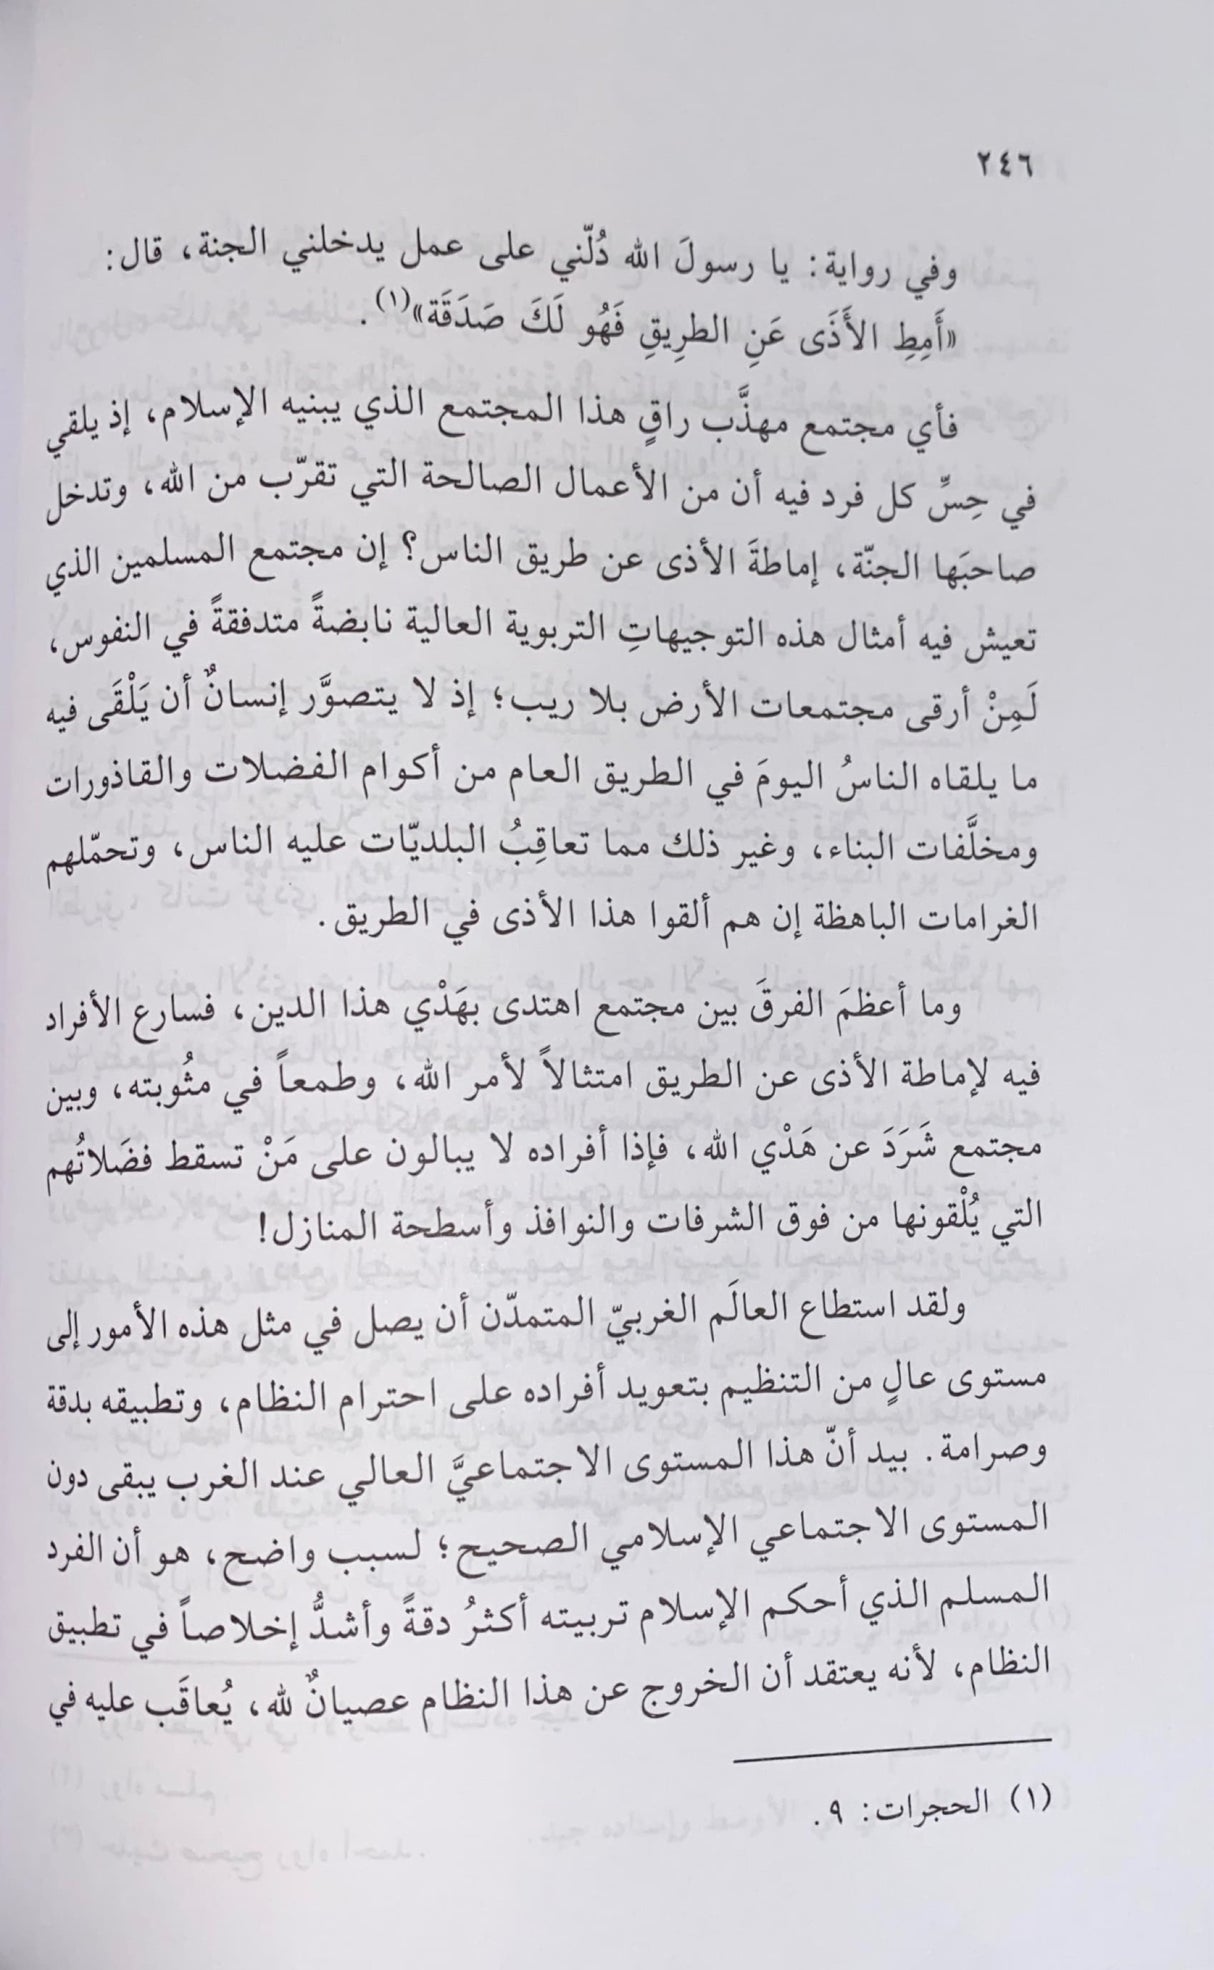 ٢٤٦
وفي رواية: يا رسولَ الله دُلّني على عمل يدخلني الجنة، قال:
«أَمِطِ الأَذَى عَنِ الطرِيقِ فَهُو لَكَ صَدَقَة»(١).
فأي مجتمع مهذَّب راقٍ هذا المجتمع الذي يبنيه الإسلام، إذ يلقي
في حِسِّ كل فرد فيه أن من الأعمال الصالحة التي تقرّب من الله، وتدخل
صاحبَها الجنّة، إماطةَ الأذى عن طريق الناس؟ إن مجتمع المسلمين الذي
تعيش فيه أمثال هذه التوجيهاتِ التربوية العالية نابضةً متدفقةً في النفوس،
لَمِنْ أرقى مجتمعات الأرض بلا ريب؛ إذ لا يتصوَّر إنسانٌ أن يَلْقَى فيه
ما يلقاه الناسُ اليومَ في الطريق العام من أكوام الفضلات والقاذورات
ومخلَّفات البناء، وغير ذلك مما تعاقِبُ البلديّات عليه الناس، وتحمّلهم
الغرامات الباهظة إن هم ألقوا هذا الأذى في الطريق.
وما أعظمَ الفرقَ بين مجتمع اهتدى بهَدْي هذا الدين، فسارع الأفراد
فيه لإماطة الأذى عن الطريق امتثالاً لأمر الله، وطمعاً في مثُوبته، وبين
مجتمع شَرَدَ عن هَدْي الله، فإذا أفراده لا يبالون على مَنْ تسقط فضَلاتُهم
التي يُلْقونها من فوق الشرفات والنوافذ وأسطحة المنازل!
ولقد استطاع العالَم الغربيّ المتمدّن أن يصل في مثل هذه الأمور إلى
مستوى عالٍ من التنظيم بتعويد أفراده على احترام النظام، وتطبيقه بدقة
وصرامة. بيد أنّ هذا المستوى الاجتماعيَّ العالي عند الغرب يبقى دون
المستوى الاجتماعي الإسلامي الصحيح؛ لسبب واضح، هو أن الفرد
المسلم الذي أحكم الإسلام تربيته أكثرُ دقةً وأشدُّ إخلاصاً في تطبيق
النظام، لأنه يعتقد أن الخروج عن هذا النظام عصيانٌ لله، يُعاقَب عليه في
(١) الحجرات: ٩.